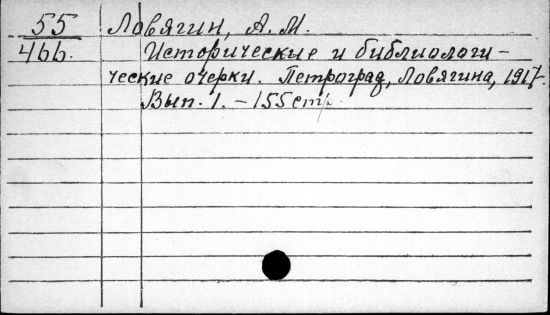 55 Ловягин, А.М.
466. Исторические и библиологи-
ческие очерки. Петроград, Ловягина, 1917.
Вып. 1. - 155 стр.